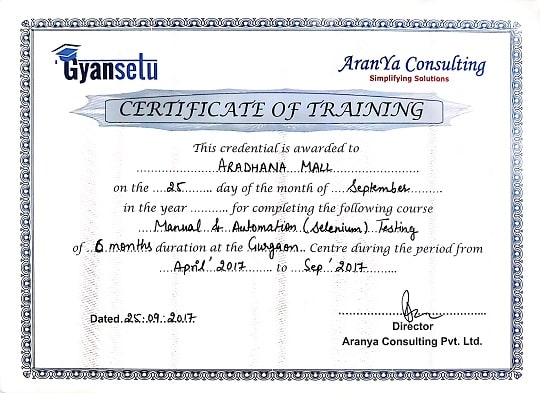 Gyansetu
AranYa Consulting
Simplifying Solutions
CERTIFICATE OF TRAINING
This credential is awarded to
ARADHANA MALL
on the 25 day of the month of September
in the year ........... for completing the following course
Manual & Automation (Selenium) Testing
of 6 months duration at the Gurgaon Centre during the period from
April' 2017 to Sep' 2017
Dated 25.09.2017
Director
Aranya Consulting Pvt. Ltd.